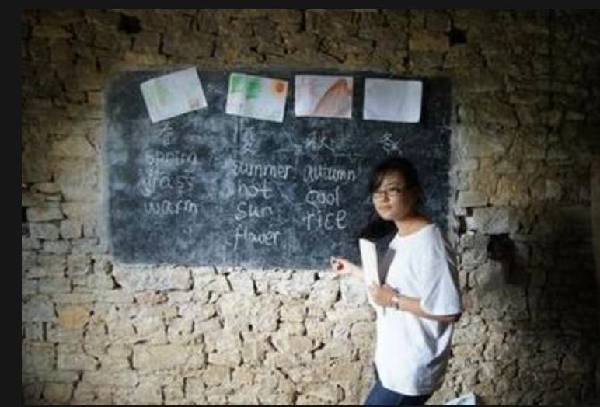 春 夏 秋 冬
spring summer autumn
grass hot cool
warm sun rice
flower